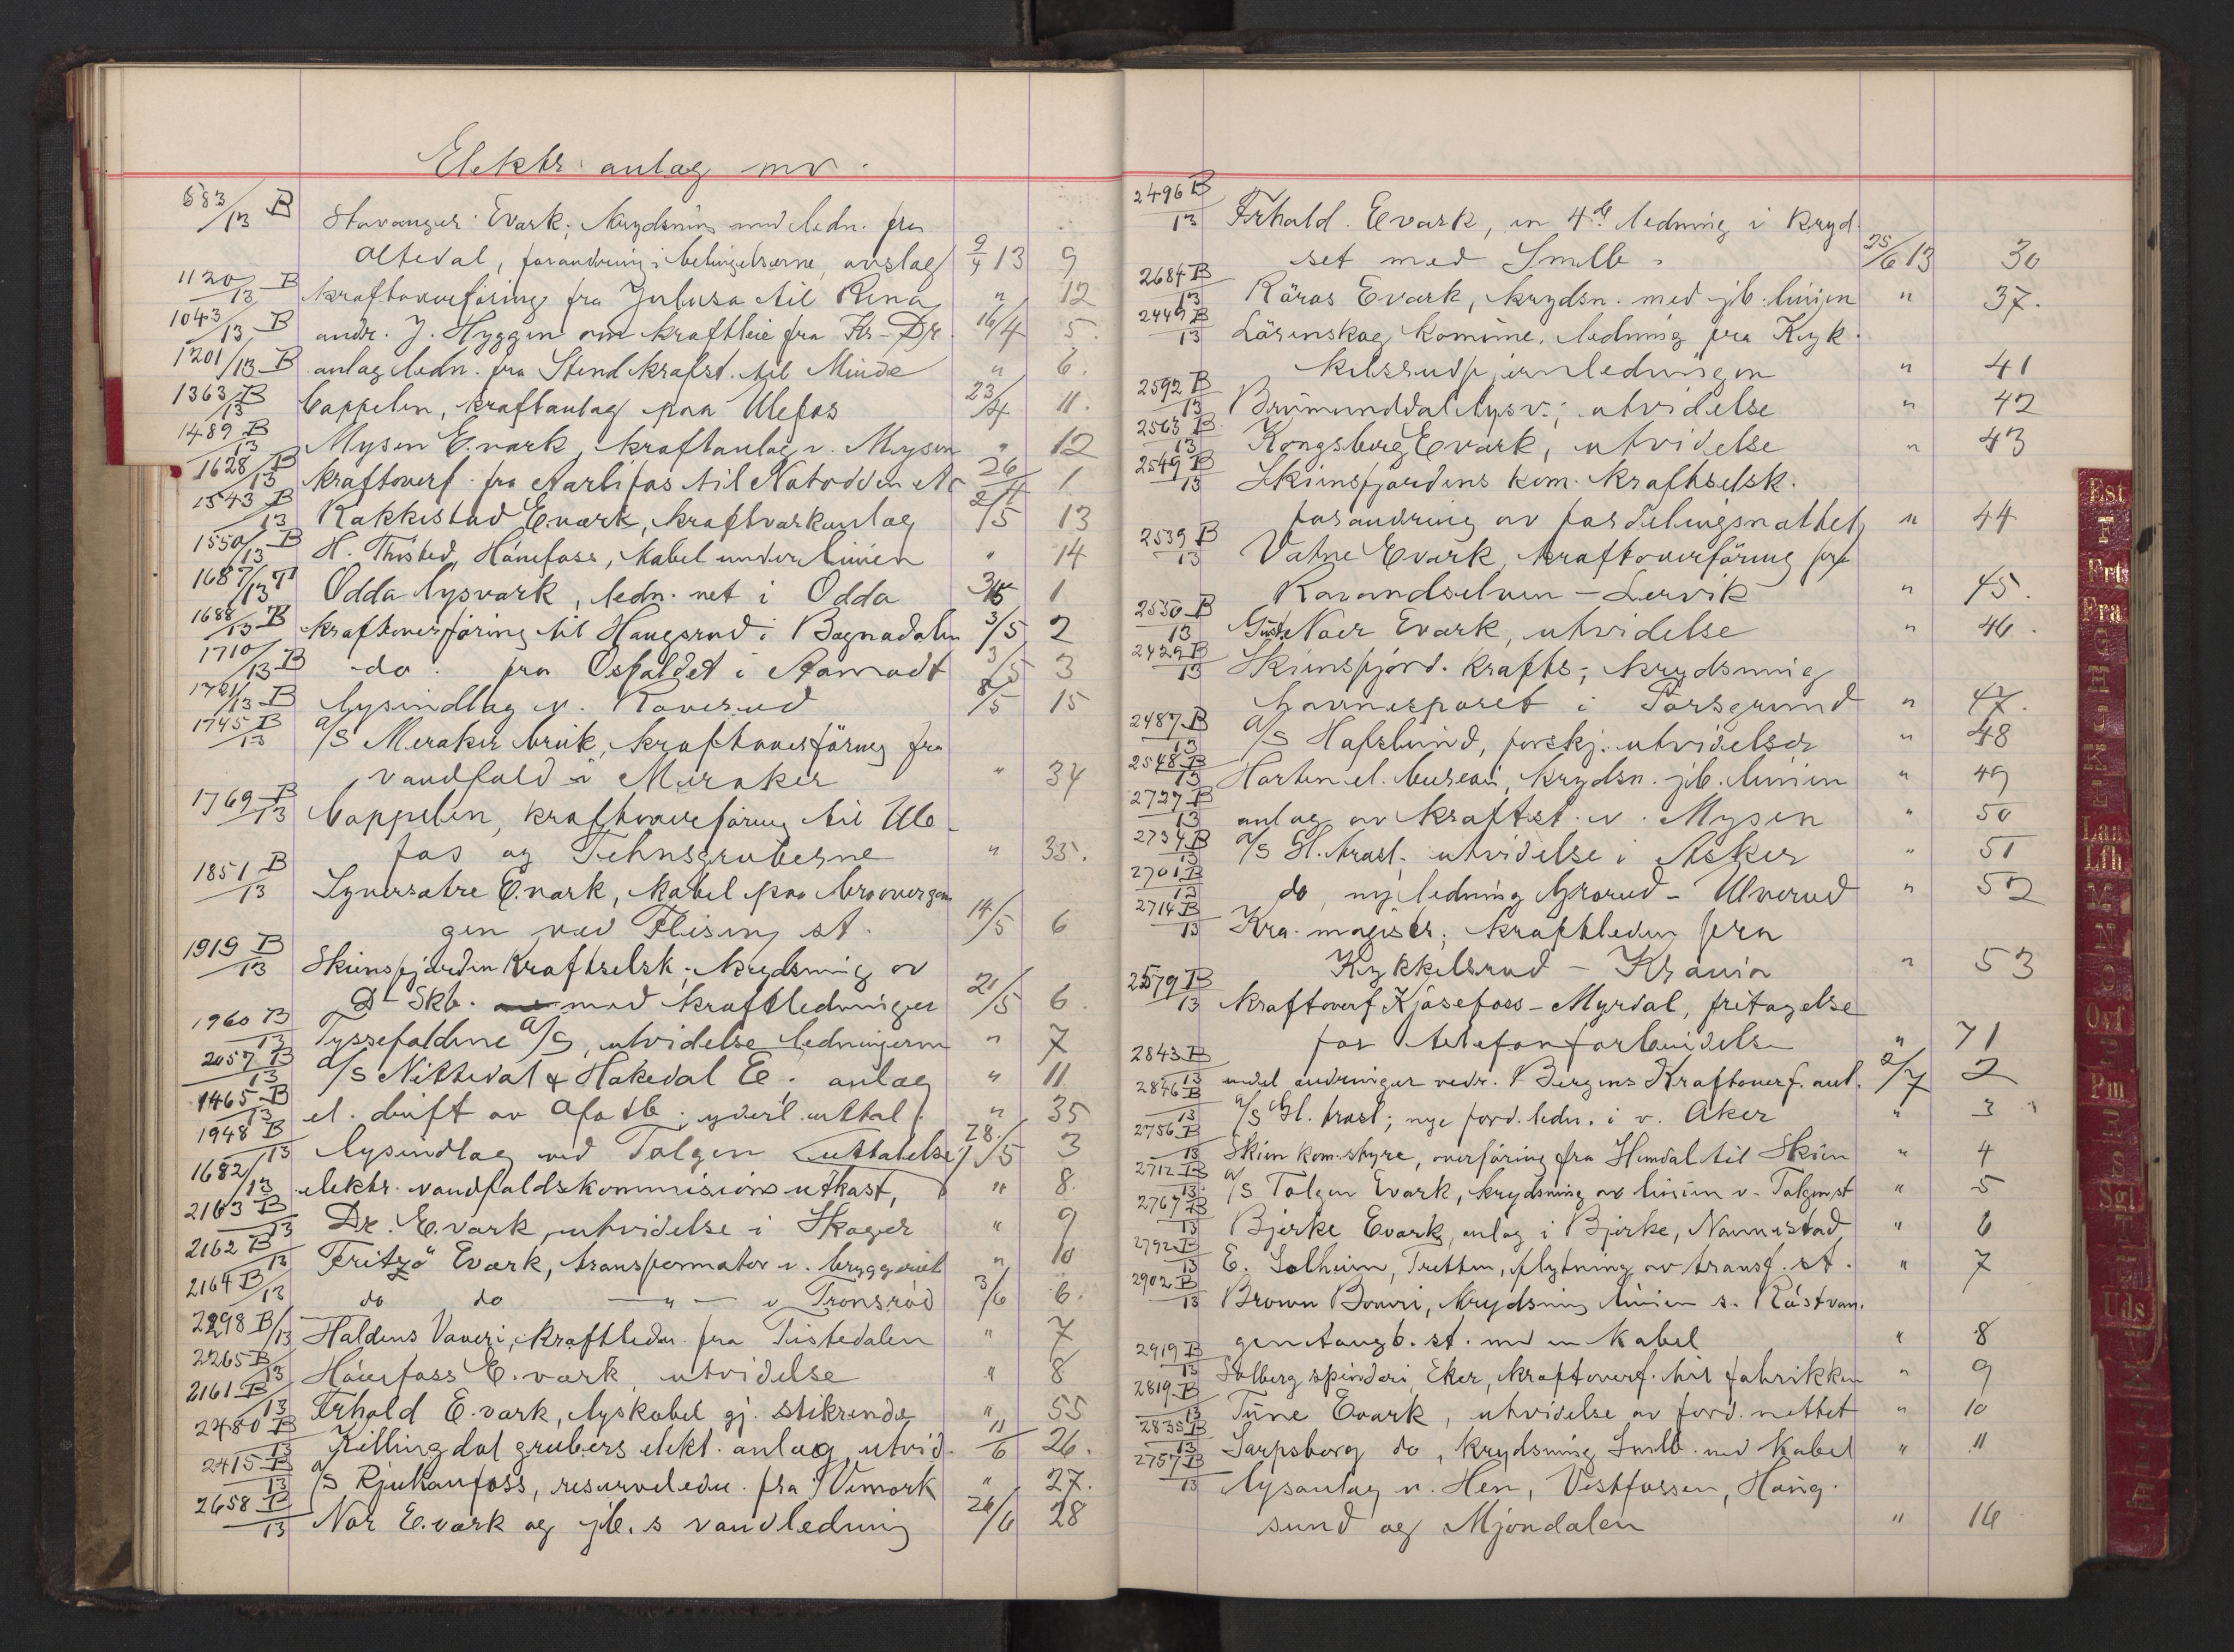 Elektr. anlæg mv.
583/13 B Stavanger Eværk; krydsning med ledn. fra
Altedal, forandring i betingelserne, avslag 9/4 13 9
1120/13 B kraftoverføring fra Julussa til Rena " 12
1043/13 B andr. J. Hyggen om kraftleie fra Kr-Dr. 16/4 5.
1201/13 B anlæg ledn. fra Stend krafst. til Minde " 6.
1363 B/13 Cappelen, kraftanlæg paa Ulefos 23/4 11.
1489 B/13 Mysen E.værk, kraftanlæg v. Mysen " 12
1628/13 B kraftoverf. fra Aarlifos til Notodden 26/4 1
1543 B/13 Rakkestad E.værk, kraftværkanlæg 2/5 13
1550/13 B H. Thisted, Hönefoss, kabel under linien " 14
1687/13 T Odda lysværk, ledn. net i Odda 3/5 1
1688/13 B kraftoverföring til Haugsrud i Bagnadalen 3/5 2
1710/13 B do. fra Osfaldet i Aamodt 3/5 3
1721/13 B lysindlæg v. Roverud 8/5 15
1745 B/13 a/s Meraker bruk, kraftoverföring fra
vandfald i Meraker " 34
1769 B/13 Cappelen, kraftoverföring til Ule-
fos og Fehnsgruberne " 35.
1851 B/13 Lynersætre E.værk, kabel paa broovergan
gen ved Fliseng st. 14/5 6
1919 B/13 Skiensfjorden Kraftselsk; krydsning av
D-Skb. med kraftledninger 21/5 6.
1960 B/13 Tyssefaldene A/S, utvidelse ledningerne " 7
2057 B/13 a/s Nittedal & Hakedal E. anlæg " 11
1465 B/13 el. drift av Ofotb; yderl. uttal. " 35
1948 B/13 lysindlæg ved Tolgen (uttalelse) 28/5 3
1682/13 elektr. vandfaldskommisions utkast, " 8.
2163 B/13 Dr. E.værk, utvidelse i Skoger " 9
2162 B/13 Fritzö Eværk, transformator v. bryggeriet " 10
2164 B/13 do do — " — v Tronsröd 3/6 6.
2298 B/13 Haldens Væveri, kraftledn. fra Tistedalen " 7
2265 B/13 Hönefoss E.værk, utvidelse " 8
2161 B/13 Frhald E.værk, lyskabel gj. stikrende " 55
2480 B/13 Killingdal grubers elekt. anlæg, utvid. 11/6 26.
2415 B/13 a/s Rjukanfoss, reserveledn. fra Vemork " 27.
2658 B/13 Nor E.værk og jb.s vandledning 26/6 28
2496 B/13 Frhald. Eværk, en 4de ledning i kryd-
set med Smlb. 25/6 13 30
2684 B/13 Röros Eværk, krydsn. med jb. linjen " 37.
2449 B/13 Lörenskog komune, ledning fra Kyk-
kelsrudfjernledningen " 41
2592 B/13 Brumunddal lysv.; utvidelse " 42
2563 B/13 Kongsberg Eværk, utvidelse " 43
2549 B/13 Skiensfjordens kom. kraftselsk.
forandring av fordelingsnettet " 44
2539 B/13 Vatne Eværk, kraftoverföring fra
Ravandselven - Lervik " 45.
2550 B/13 Nær Eværk, utvidelse " 46.
2429 B/13 Skiensfjord. krafts; krydsning
havnesporet i Porsgrund " 47.
2487 B/13 a/s Hafslund, forskj. utvidelser " 48
2548 B/13 Horten el. bureau, krydsn. jb. linien " 49
2727 B/13 anlæg av kraftst. v. Mysen " 50
2734 B/13 a/s Gl. brasl. utvidelse i Asker " 51
2701 B/13 do, ny ledning Grorud - Ulverud " 52
2714 B/13 Kra. magistr; kraftledn fra
Kykkelsrud - Krania " 53
2579 B/13 kraftoverf Kjösefoss - Myrdal, fritagelse
for telefonforbindelse " 71
2843 B/13 endel ændringer vedr. Bergens Kraftoverf. anl. 2/7 2
2846 B/13 a/s Gl. brasl; nye ford. ledn. i v. Aker " 3
2756 B/13 Skien kom. styre, overföring fra Hemdal til Skien " 4
2712 B/13 a/s Tolgen Eværk, krydsning av linien v. Tolgen st " 5
2767 B/13 Bjerke Eværk, anlæg i Bjerke, Nannestad " 6
2792 B/13 E. Solheim, Tretten, flytning av transf. st. " 7
2902 B/13 Brown Boveri, krydsning linien s. Röstvan.
gen tangb. st. med en kabel " 8
2919 B/13 Solberg spinderi, Eker, kraftoverf. til fabrikken " 9
2819 B/13 Tune Eværk, utvidelse av ford. nettet " 10
2835 B/13 Sarpsborg do, krydsning Smlb. med kabel " 11
2757 B/13 lysanlæg v. Hen, Vestfossen, Haug-
sund og Mjöndalen " 16
Est
F
Frt
Fra
G
H
J
K
L
Laa
Lfh
M
N
O
Osf
P
Pm
R
S
Sgl
T
U
Uds